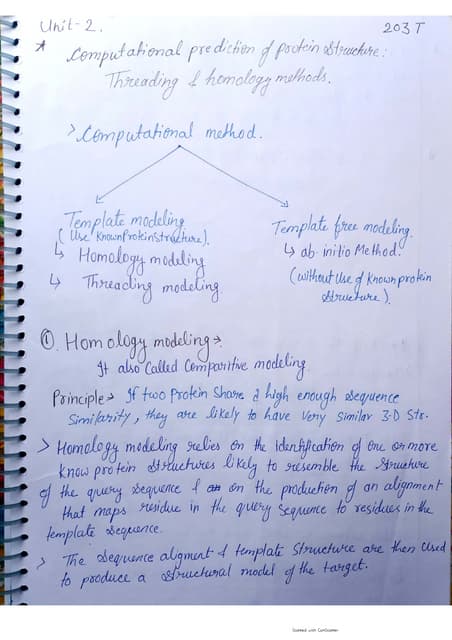 Unit-2.
203T
* Computational prediction of protein structure:
Threading & homology methods.
> Computational method.
Template modeling
(Use Known Protein Structure).
↳ Homology modeling
↳ Threading modeling
Template free modeling.
↳ ab-initio Method.
(without use of Known protein
Structure).
① Homology modeling →
It also Called Comparitive modeling
Principle → If two Protein Share a high enough Sequence
Similarity, they are likely to have very similar 3-D Str.
> Homology modeling relies on the identification of one or more
know protein structures likely to resemble the structure
of the query sequence & on the production of an alignment
that maps residue in the query Sequence to residues in the
template sequence.
> The sequence aligment & template structure are then used
to produce a structural model of the target.
Scanned with CamScanner